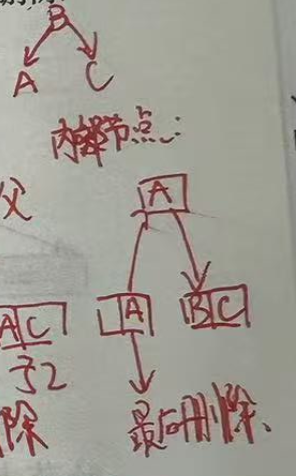 B
A C
内部节点:
父
A
A BC
AC
子2
除
最后删除、